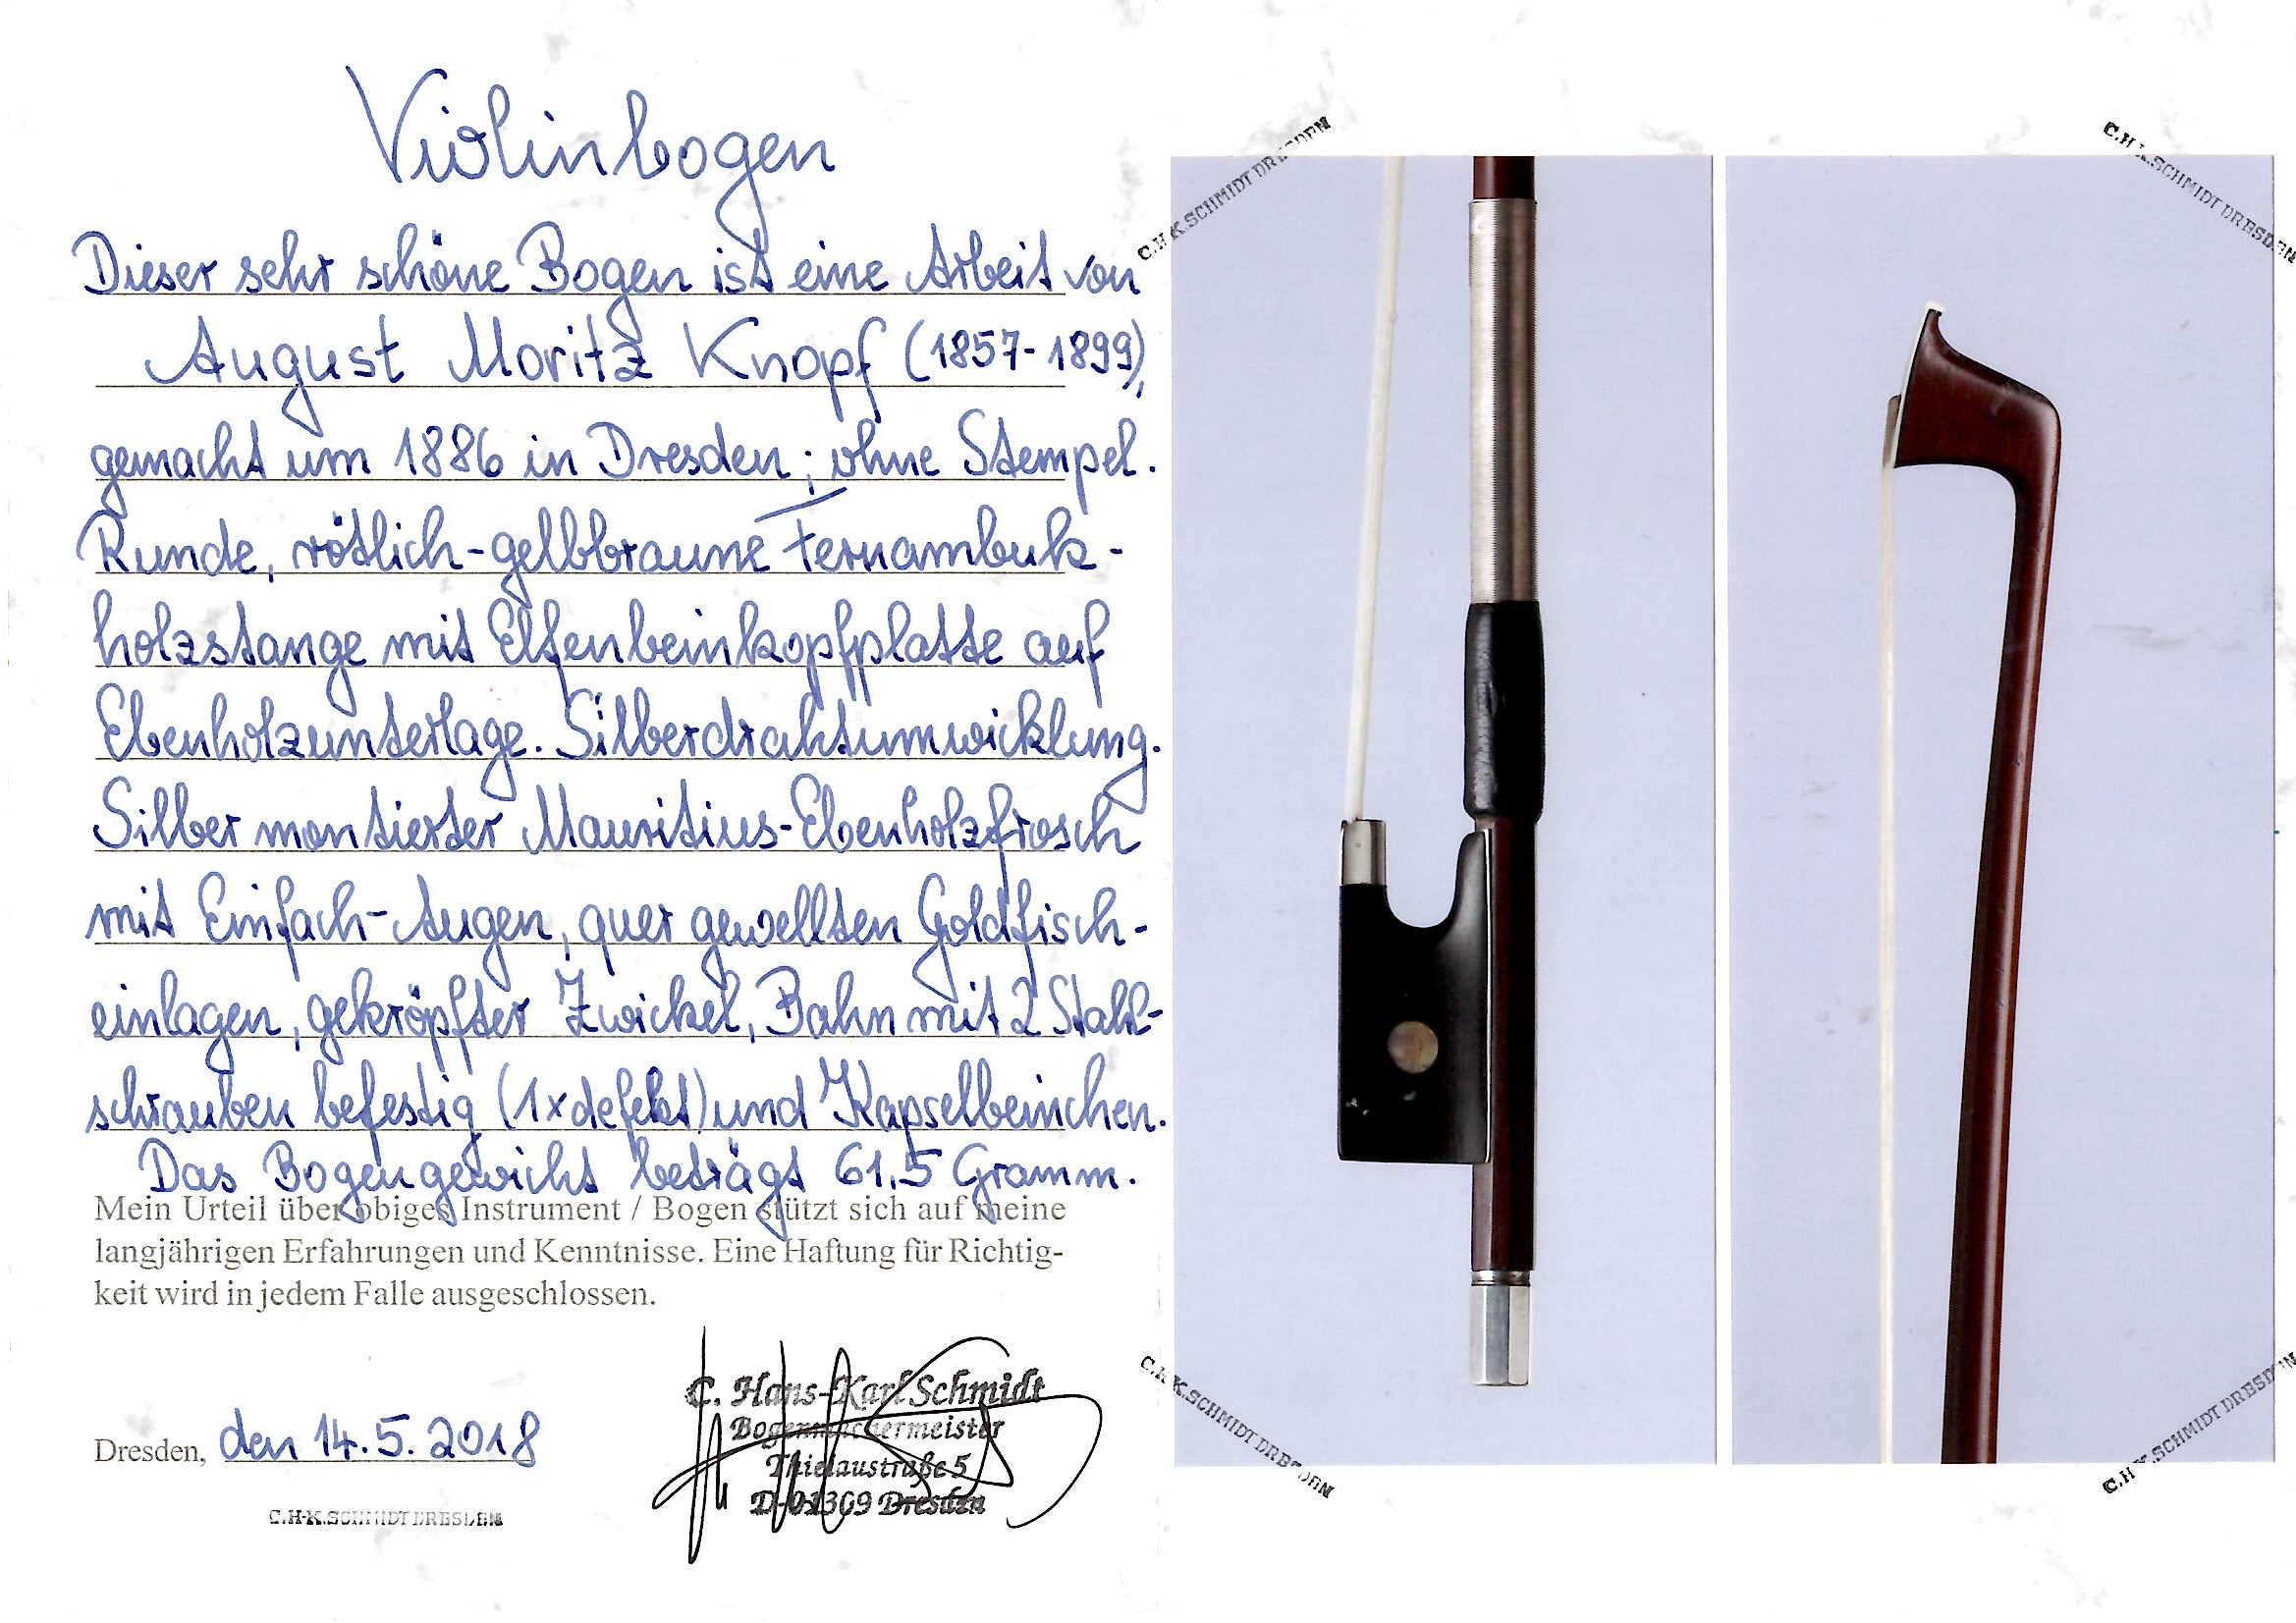 Violinbogen
Dieser sehr schöne Bogen ist eine Arbeit von
August Moritz Knopf (1857-1899),
gemacht um 1886 in Dresden; ohne Stempel.
Runde, rötlich-gelbbraune Fernambuk-
holzstange mit Elfenbeinkopfplatte auf
Ebenholzunterlage. Silberdrahtumwicklung.
Silber montierter Mauritius-Ebenholzfrosch
mit Einfach-Augen, quer gewellten Goldfisch-
einlagen, gekröpfter Zwickel, Bahn mit 2 Stahl-
schrauben befestig (1x defekt) und Kapselbeinchen.
Das Bogengewicht beträgt 61,5 Gramm.
Mein Urteil über obiges Instrument / Bogen stützt sich auf meine
langjährigen Erfahrungen und Kenntnisse. Eine Haftung für Richtig-
keit wird in jedem Falle ausgeschlossen.
Dresden, den 14.5.2018
C. Hans-Karl Schmidt
Bogenmachermeister
Thielaustraße 5
D-01309 Dresden
C.H-K.SCHMIDT DRESDEN
C.H.K.SCHMIDT DRESDEN
C.H.K.SCHMIDT DRESDEN
C.H.K.SCHMIDT DRESDEN
C.H.K.SCHMIDT DRESDEN